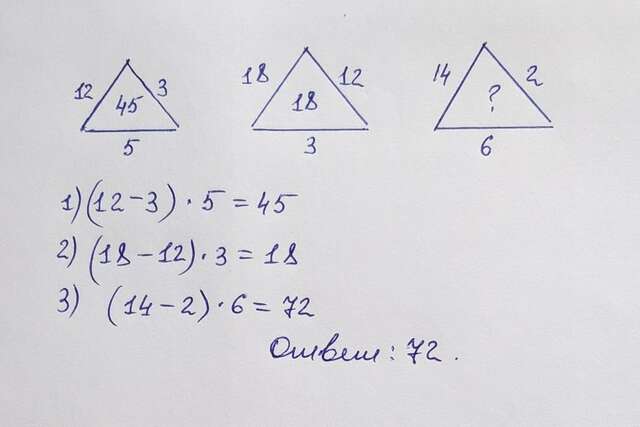 12 3 18 12 14 2
45 18 ?
5 3 6
1) (12-3) · 5 = 45
2) (18-12) · 3 = 18
3) (14-2) · 6 = 72
Ответ: 72.